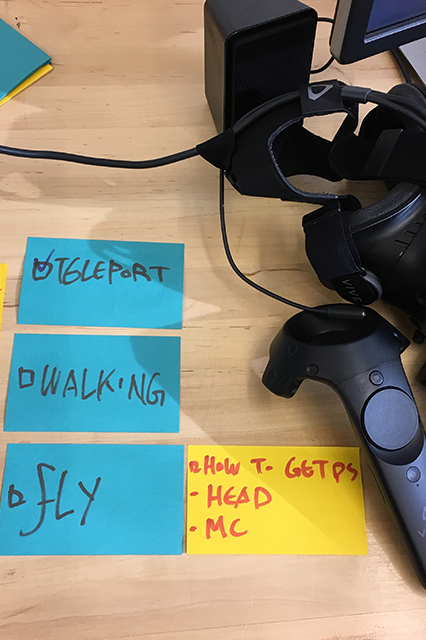 TELEPORT
WALKING
FLY
HOW TO GET PS
- HEAD
- MC
VIVE